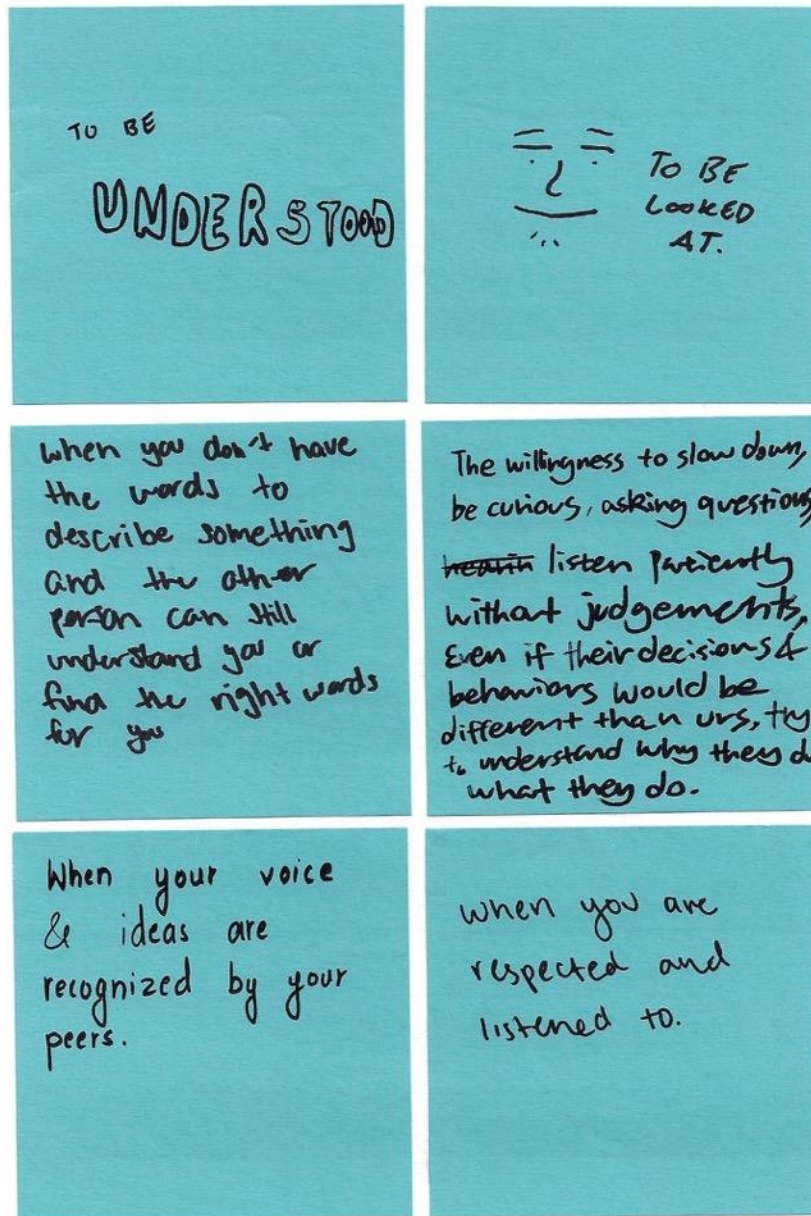 TO BE
UNDERSTOOD
TO BE
LOOKED
AT.
when you don't have
the words to
describe something
and the other
person can still
understand you or
find the right words
for you
The willingness to slow down,
be curious, asking questions,
listen patiently
without judgements,
Even if their decisions &
behaviors would be
different than urs, try
to understand why they do
what they do.
When your voice
& ideas are
recognized by your
peers.
when you are
respected and
listened to.